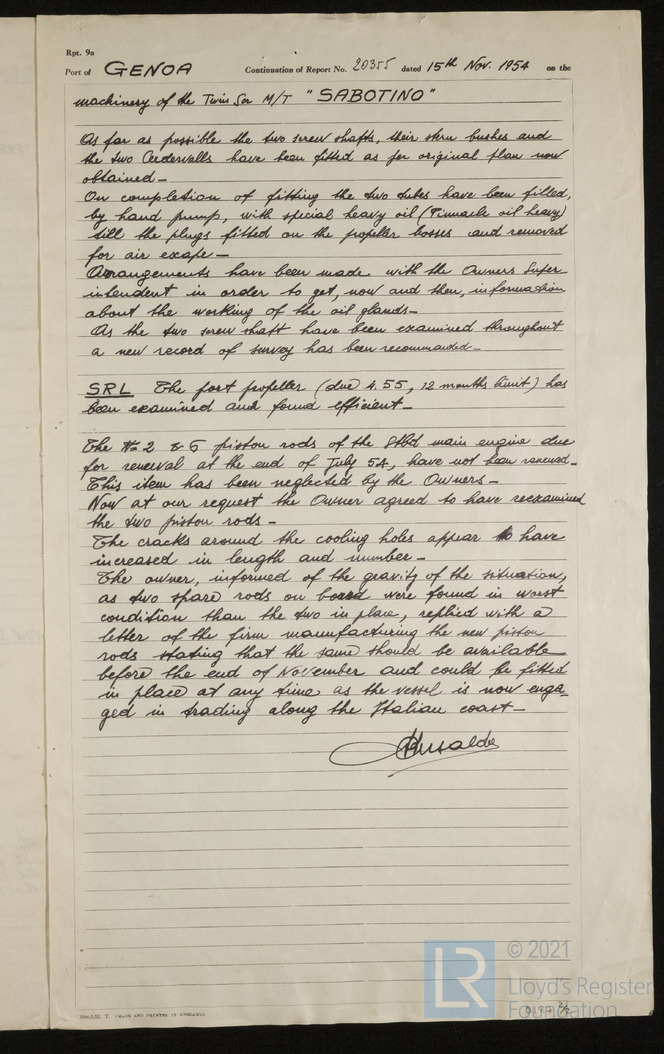 Rpt. 9a
Port of GENOA Continuation of Report No. 20355 dated 15th Nov. 1954 on the
machinery of the Twin Scr M/T "SABOTINO"
As far as possible the two screw shafts, their stern bushes and
the two Cedervalls have been fitted as per original plan now
obtained -
On completion of fitting the two tubes have been filled,
by hand pump, with special heavy oil (Tinnacle oil heavy)
till the plugs fitted on the propeller bosses and removed
for air excape -
Arrangements have been made with the Owners Super
intendent in order to get, now and then, information
about the working of the oil glands -
As the two screw shaft have been examined throughout
a new record of survey has been recommended -
SRL The port propeller (due 4.55, 12 months limit) has
been examined and found efficient -
The No 2 & 5 piston rods of the Stbd main engine due
for renewal at the end of July 54, have not been renewed -
This item has been neglected by the Owners -
Now at our request the Owner agreed to have reexamined
the two piston rods -
The cracks around the cooling holes appear to have
increased in length and number -
The owner, informed of the gravity of the situation,
as two spare rods on board were found in worst
condition than the two in place, replied with a
letter of the firm manufacturing the new piston
rods stating that the same should be available
before the end of November and could be fitted
in place at any time as the vessel is now enga-
ged in trading along the Italian coast -
© 2021
LR Lloyd's Register
Foundation
(MADE AND PRINTED IN ENGLAND)